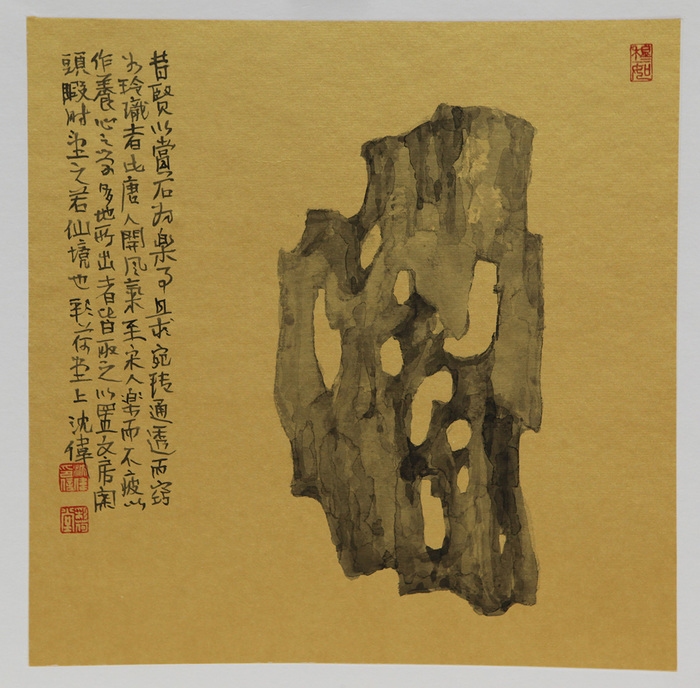 昔賢以賞石為樂事且求宛轉通透而窈
玲瓏者唐人開風氣至宋人樂而不疲以
作養心之多地所出者皆取之以置文房
頭暇時望之若仙境也荷堂上沈偉